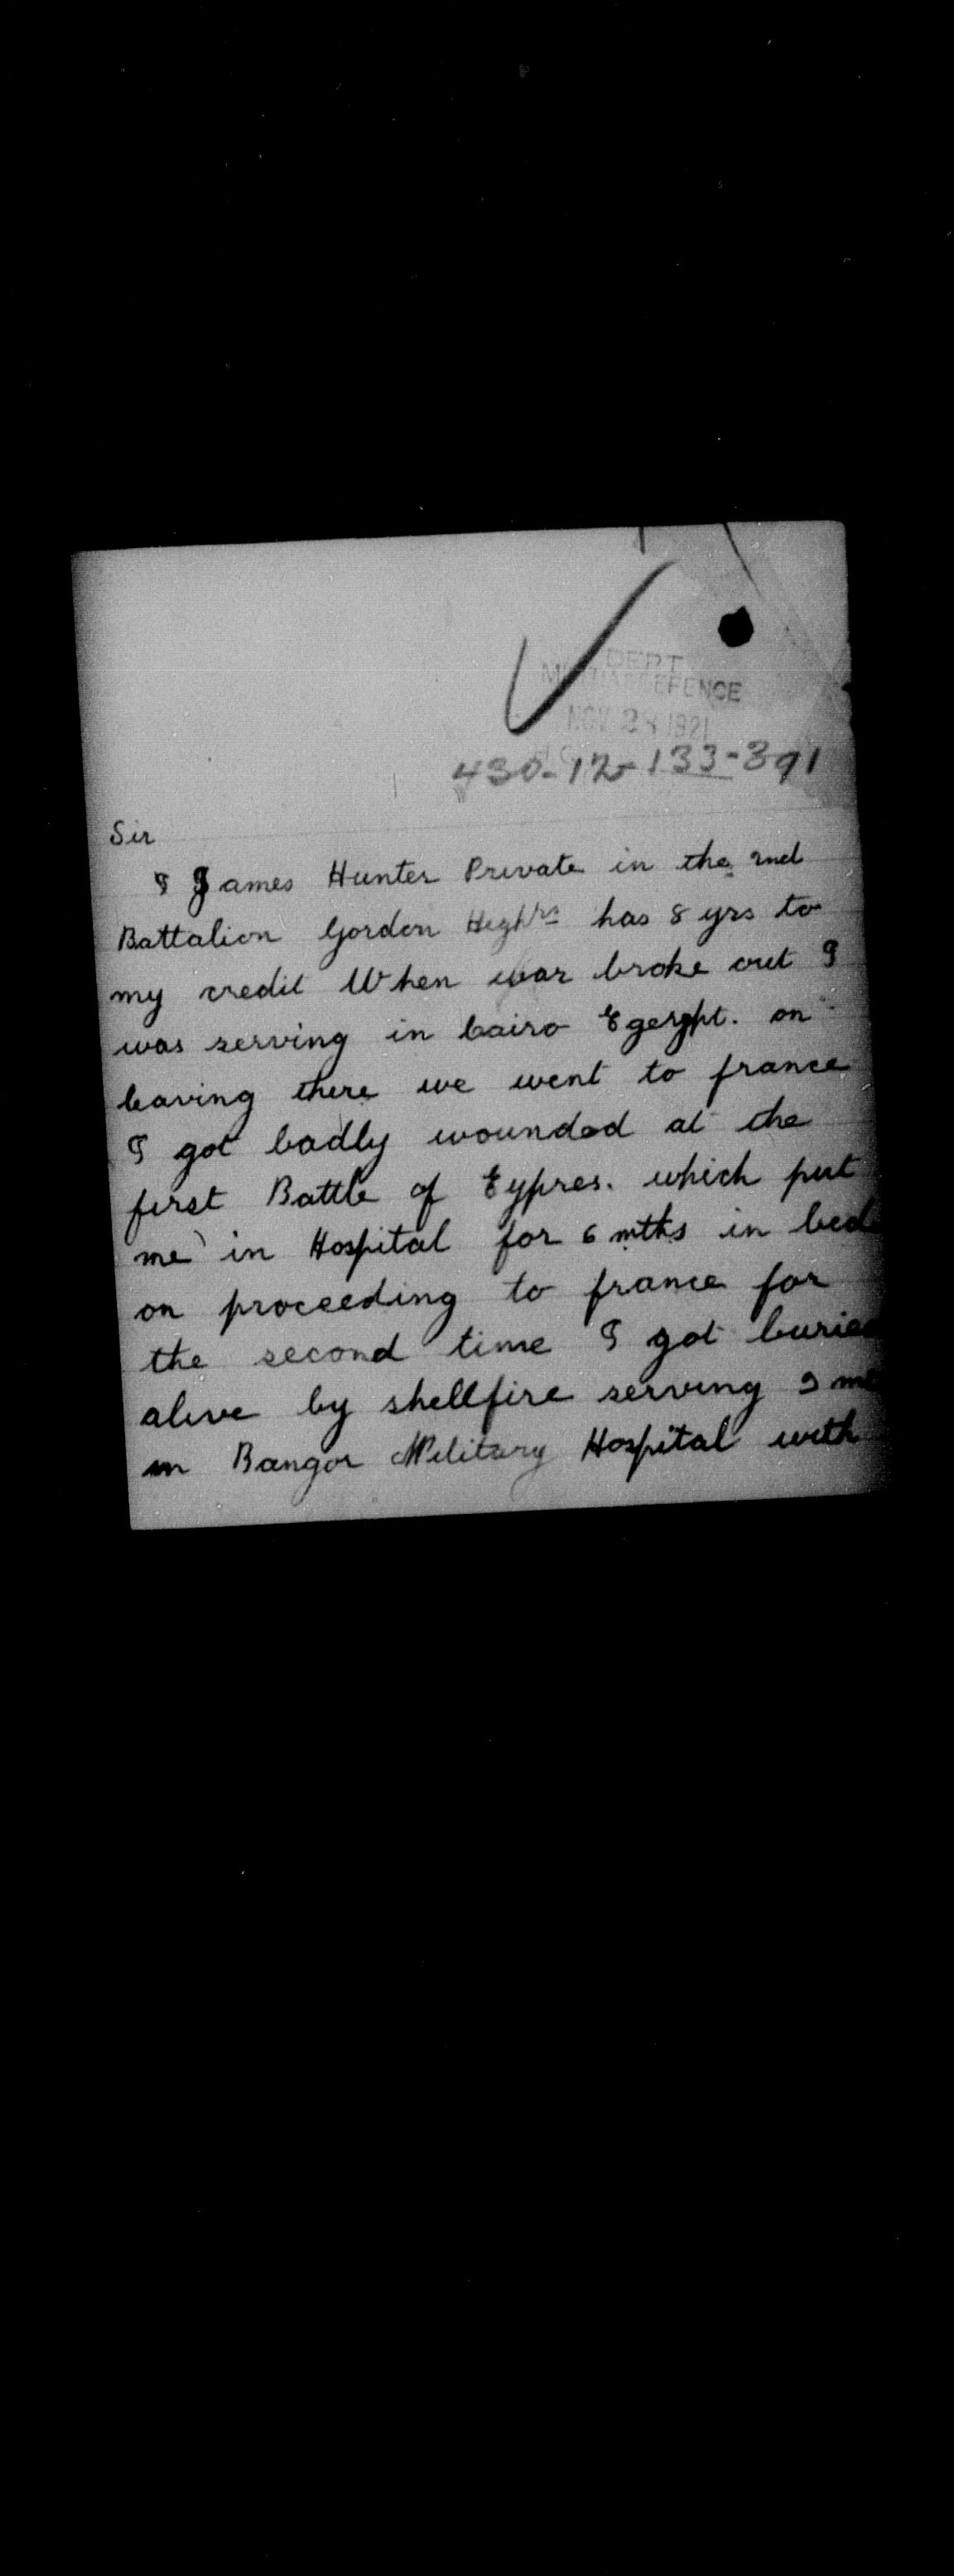 DEPT
MILITIA & DEFENCE
NOV 28 1921
430-12-133-391
Sir
I James Hunter Private in the 2nd
Battalion Gordon Heghrs has 8 yrs to
my credit When war broke out I
was serving in Cairo Egerpt. on
leaving there we went to france
I got badly wounded at the
first Battle of Eypres. which put
me in Hospital for 6 mths in bed
on proceeding to france for
the second time I got buried
alive by shellfire serving
in Bangor Military Hospital with